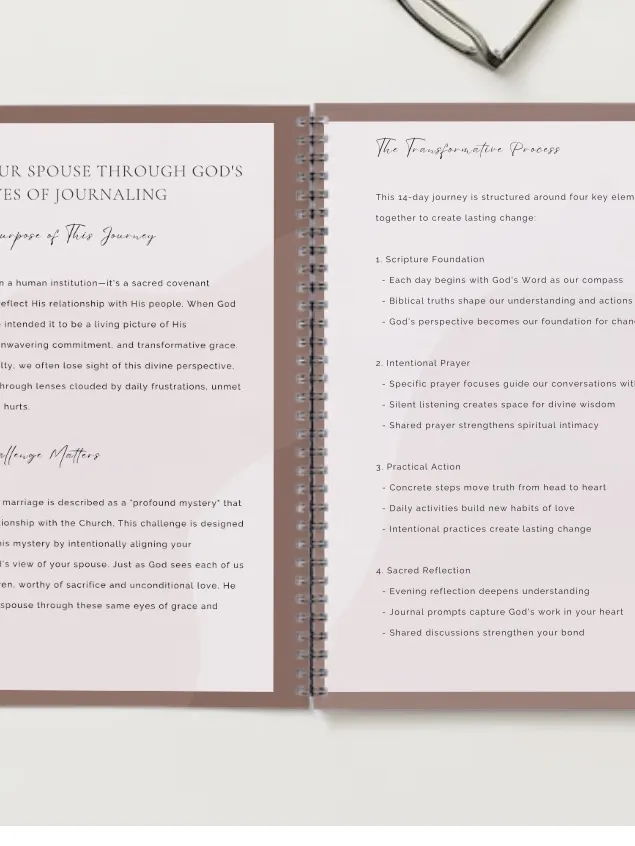 UR SPOUSE THROUGH GOD'S
ES OF JOURNALING
urpose of This Journey
n a human institution—it's a sacred covenant
eflect His relationship with His people. When God
intended it to be a living picture of His
nwavering commitment, and transformative grace.
lty, we often lose sight of this divine perspective,
hrough lenses clouded by daily frustrations, unmet
hurts.
allenge Matters
marriage is described as a "profound mystery" that
ionship with the Church. This challenge is designed
his mystery by intentionally aligning your
l's view of your spouse. Just as God sees each of us
ren, worthy of sacrifice and unconditional love, He
spouse through these same eyes of grace and
The Transformative Process
This 14-day journey is structured around four key elem
together to create lasting change:
1. Scripture Foundation
- Each day begins with God's Word as our compass
- Biblical truths shape our understanding and actions
- God's perspective becomes our foundation for chan
2. Intentional Prayer
- Specific prayer focuses guide our conversations wit
- Silent listening creates space for divine wisdom
- Shared prayer strengthens spiritual intimacy
3. Practical Action
- Concrete steps move truth from head to heart
- Daily activities build new habits of love
- Intentional practices create lasting change
4. Sacred Reflection
- Evening reflection deepens understanding
- Journal prompts capture God's work in your heart
- Shared discussions strengthen your bond